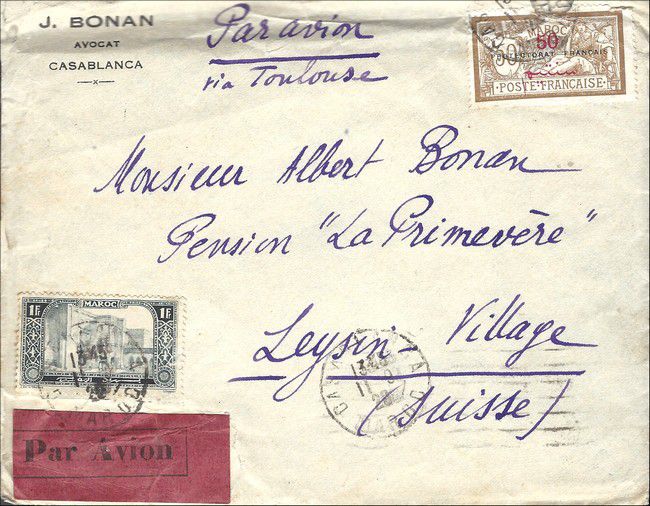 J. BONAN
AVOCAT
CASABLANCA
Par avion
via Toulouse
MAROC
50
PROTECTORAT FRANÇAIS
POSTE FRANÇAISE
Monsieur Albert Bonan
Pension "La Primevère"
Leysin-Village
(Suisse)
1F MAROC 1F
Par Avion